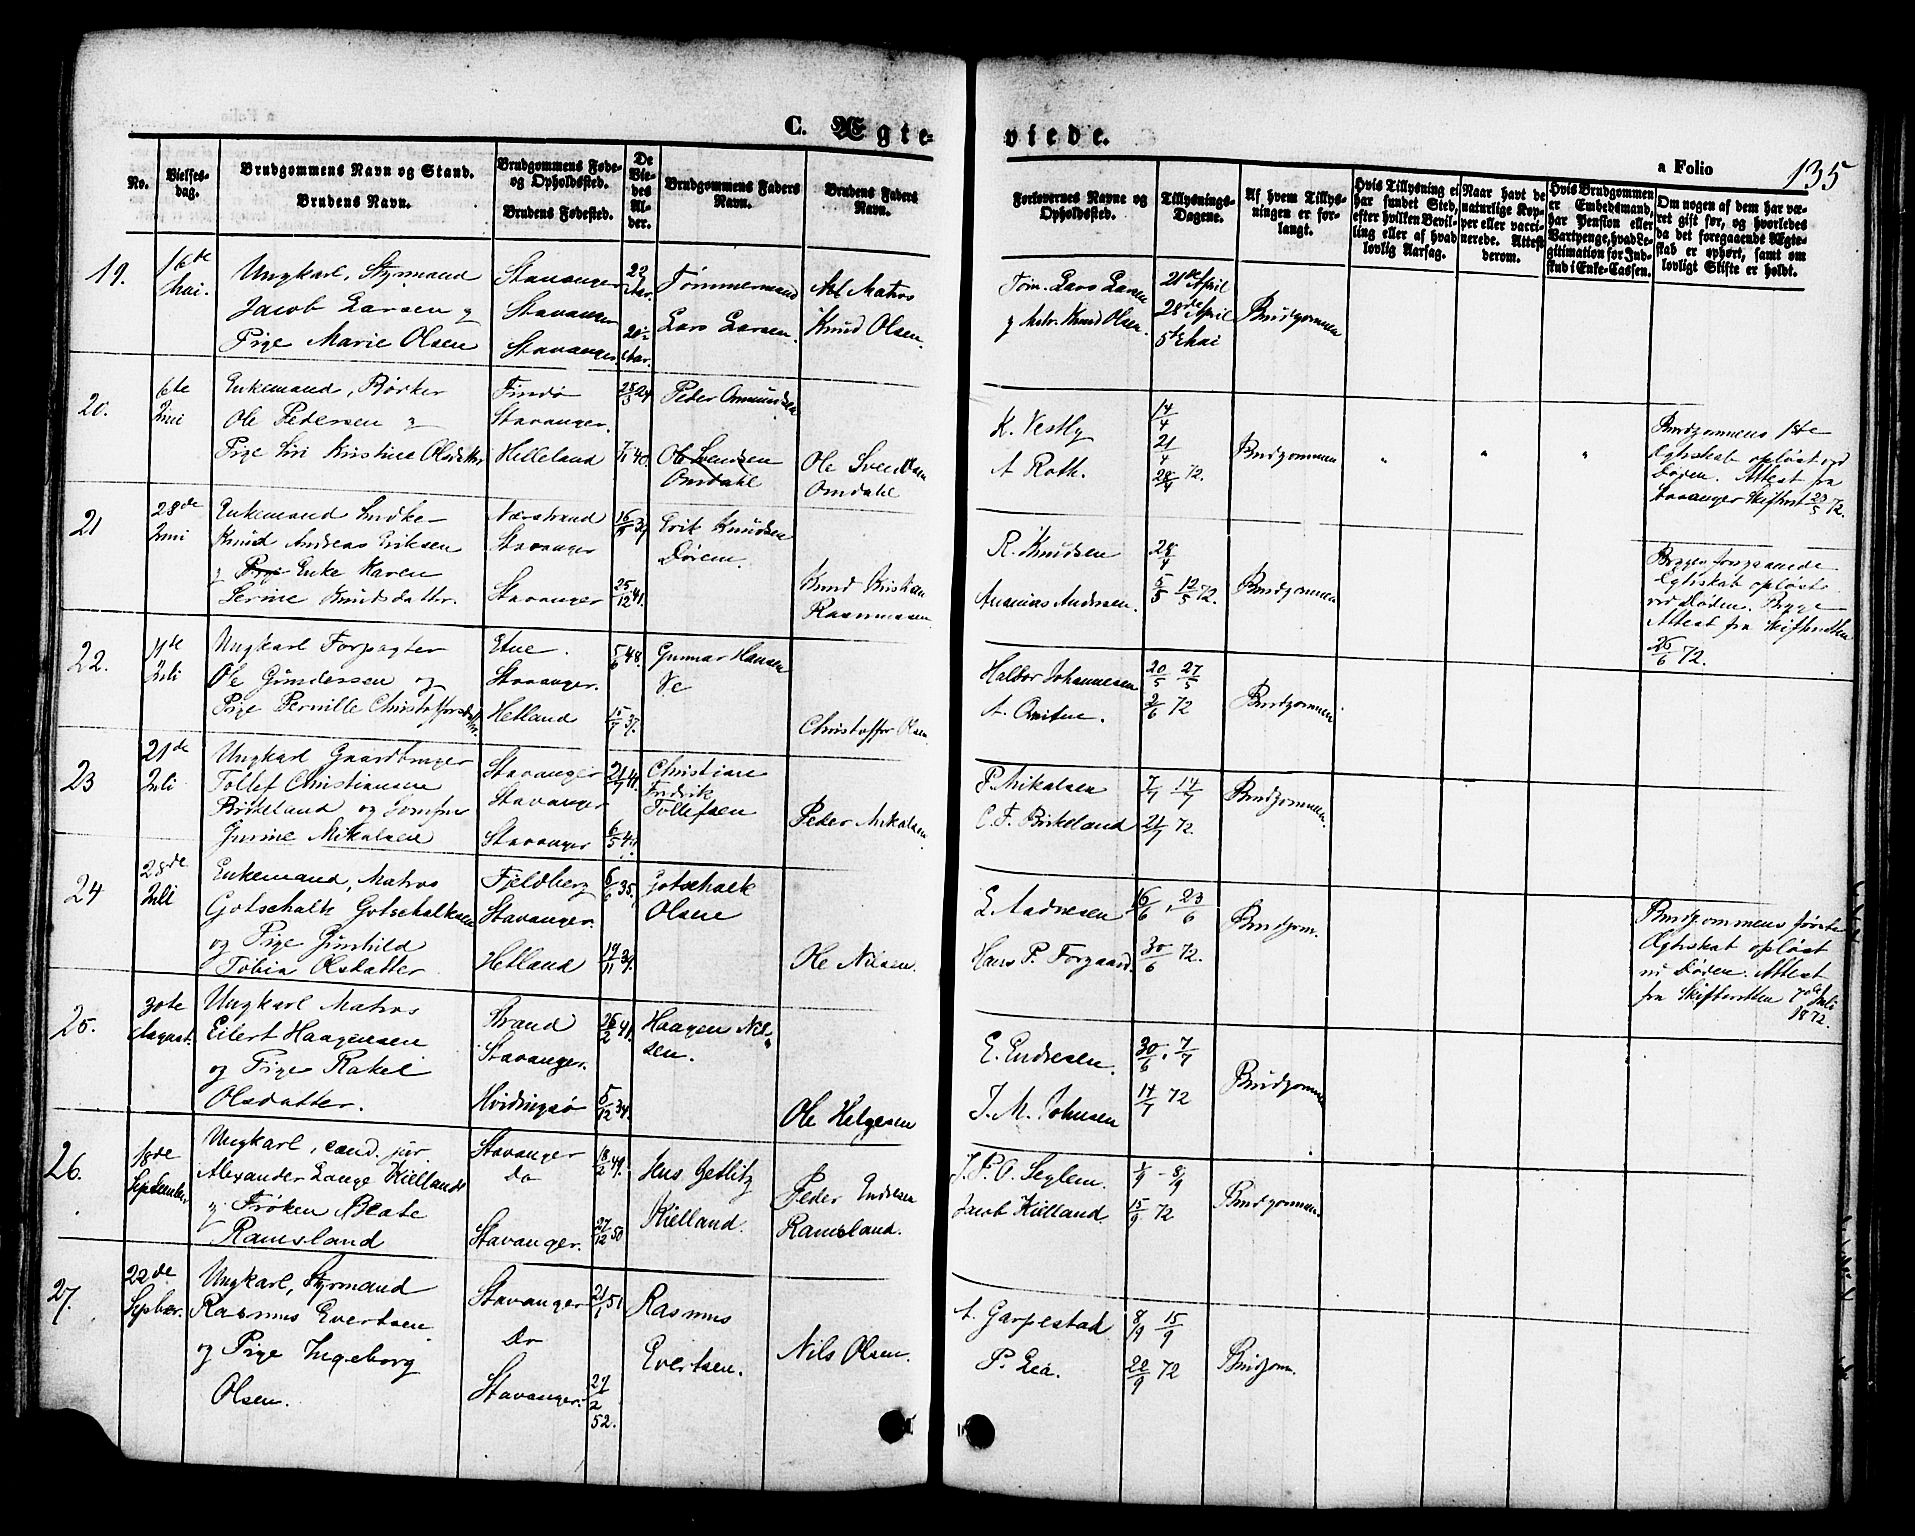 C. Ægte-
viede.
a Folio 135
No.
Vielses-
dag.
Brudgommens Navn og Stand.
Brudens Navn.
Brudgommens Føde-
og Opholdssted.
Brudens Fødested.
De
Vie-
des
Al-
der.
Brudgommens Faders
Navn.
Brudens Faders
Navn.
Forlovernes Navne og
Opholdssted.
Tillysnings-
Dagene.
Af hvem Tillys-
ningen er for-
langt.
Hvis Tillysning ei
har fundet Sted,
efter hvilken Bevil-
ling eller af hvad
lovlig Aarsag.
Naar havt de
naturlige Kop-
per eller vacci-
nerede. Attest
derom.
Hvis Brudgommen
er Embedsmand,
har Pension eller
Vartpenge, hvad Le-
gitimation for Ind-
skud i Enke-Cassen.
Om nogen af dem har væ-
ret gift før, og hvorledes
da det foregaaende Ægte-
skab er ophørt, samt om
lovligt Skifte er holdt.
19.
16de
Mai.
Ungkarl, Styrmand
Jacob Larsen og
Pige Marie Olsen
Stavanger
Stavanger
Stavanger
22
Aar.
20
Aar.
Tømmermand
Lars Larsen.
Matros
Knud Olsen.
Tøm. Lars Larsen
og Matr. Knud Olsen.
21de April
28de April
5te Mai
Brudgommen
20.
6te
Juni
Enkemand, Bødker
Ole Pedersen og
Pige Siri Kristine Olsdatter
Findø
Stavanger.
Helleland
28/3 24
7/11 40.
Peder Omundsen
Ole Svendsen
Omdahl
Ole Svendsen
Omdahl
K. Vestly
A Roth.
14/4
21/4
28/4 72.
Brudgommen
"
"
"
Brudgommens 1ste
Egteskab opløst ved
Døden. Attest fra
Stavanger Skifteret 23/5 72.
21
28de
Juni
Enkemand
Knud Andreas Eriksen
og Pige Enke Karen
Serine Knudsdatter.
Nærstrand
Stavanger
Stavanger
25/12 41.
Erik Knudsen
Knud Kristian
Rasmussen
R. Knudsen
Ananias Andersen.
28/4
5/5 12/5 72.
Brudgommen
Egteskab opløst
ved Døden. Begge
Attest fra Skifteretten
26/6 72.
22.
Juli
Ungkarl Forpagter
Ole Gundersen og
Pige Pernille Christoffersdatter.
Etne.
Stavanger.
Hetland
5/6 48.
15/7 37.
Gunnar Hansen
Christoffer Olsen.
Halvor Johannesen
20/5 27/5
2/6 72
Brudgommen
23
21de
Juli
Ungkarl Gaardbruger
Tollef Christiansen
Birkeland og Jomfru
Gurine Mikalsen
Stavanger
Stavanger
Stavanger
Christian
Fredrik
Tollefsen
Peder Mikalsen
P. Mikalsen
C. F. Birkeland
7/7 14/7
21/7 72
Brudgommen.
24
28de
Juli
Enkemand, Matros
Gotschalk Gotschalksen
og Pige Gunhild
Tobia Olsdatter
Fjeldberg
Stavanger.
Hetland
6/6 35.
Gotschalk
Olsen
Ole Nilsen.
L. Aadnesen
Hans P. Forgaard.
16/6, 23/6
30/6 72.
Brudgom.
Brudgommens første
Egteskab opløst
ved Døden. Attest
fra Skifteretten 7de Juli
1872.
25.
30te
August.
Ungkarl Matros
Eilert Haagensen
og Pige Rakel
Olsdatter.
Strand
Stavanger.
Hvidingsø
26/2 41.
5/12 34.
Haagen Nil-
sen.
Ole Helgesen
E. Endresen.
J. M. Johnsen
30/6, 7/7
14/7 72
Brudgommen
26.
18de
September
Ungkarl, cand. jur.
Alexander Lange Kielland
og Frøken Beate
Ramsland
Stavanger
Do
Stavanger.
18/2 49.
27/12 50
Jens Zetlitz
Kielland.
Peder Endresen
Ramsland.
J. P. O. Seglem.
Jacob Kielland.
1/9 - 8/9
15/9 72
Brudgommen.
27.
22de
Septbr.
Ungkarl, Styrmand
Rasmus Evertsen
og Pige Ingeborg
Olsen.
Stavanger
Do
Stavanger.
21/1 51
27/2
52.
Rasmus
Evertsen.
Nils Olsen.
A. Garpestad
P. Lea.
8/9 15/9
22/9 72
Brudgom.